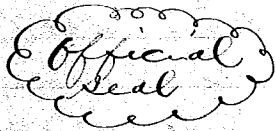 Official
Seal